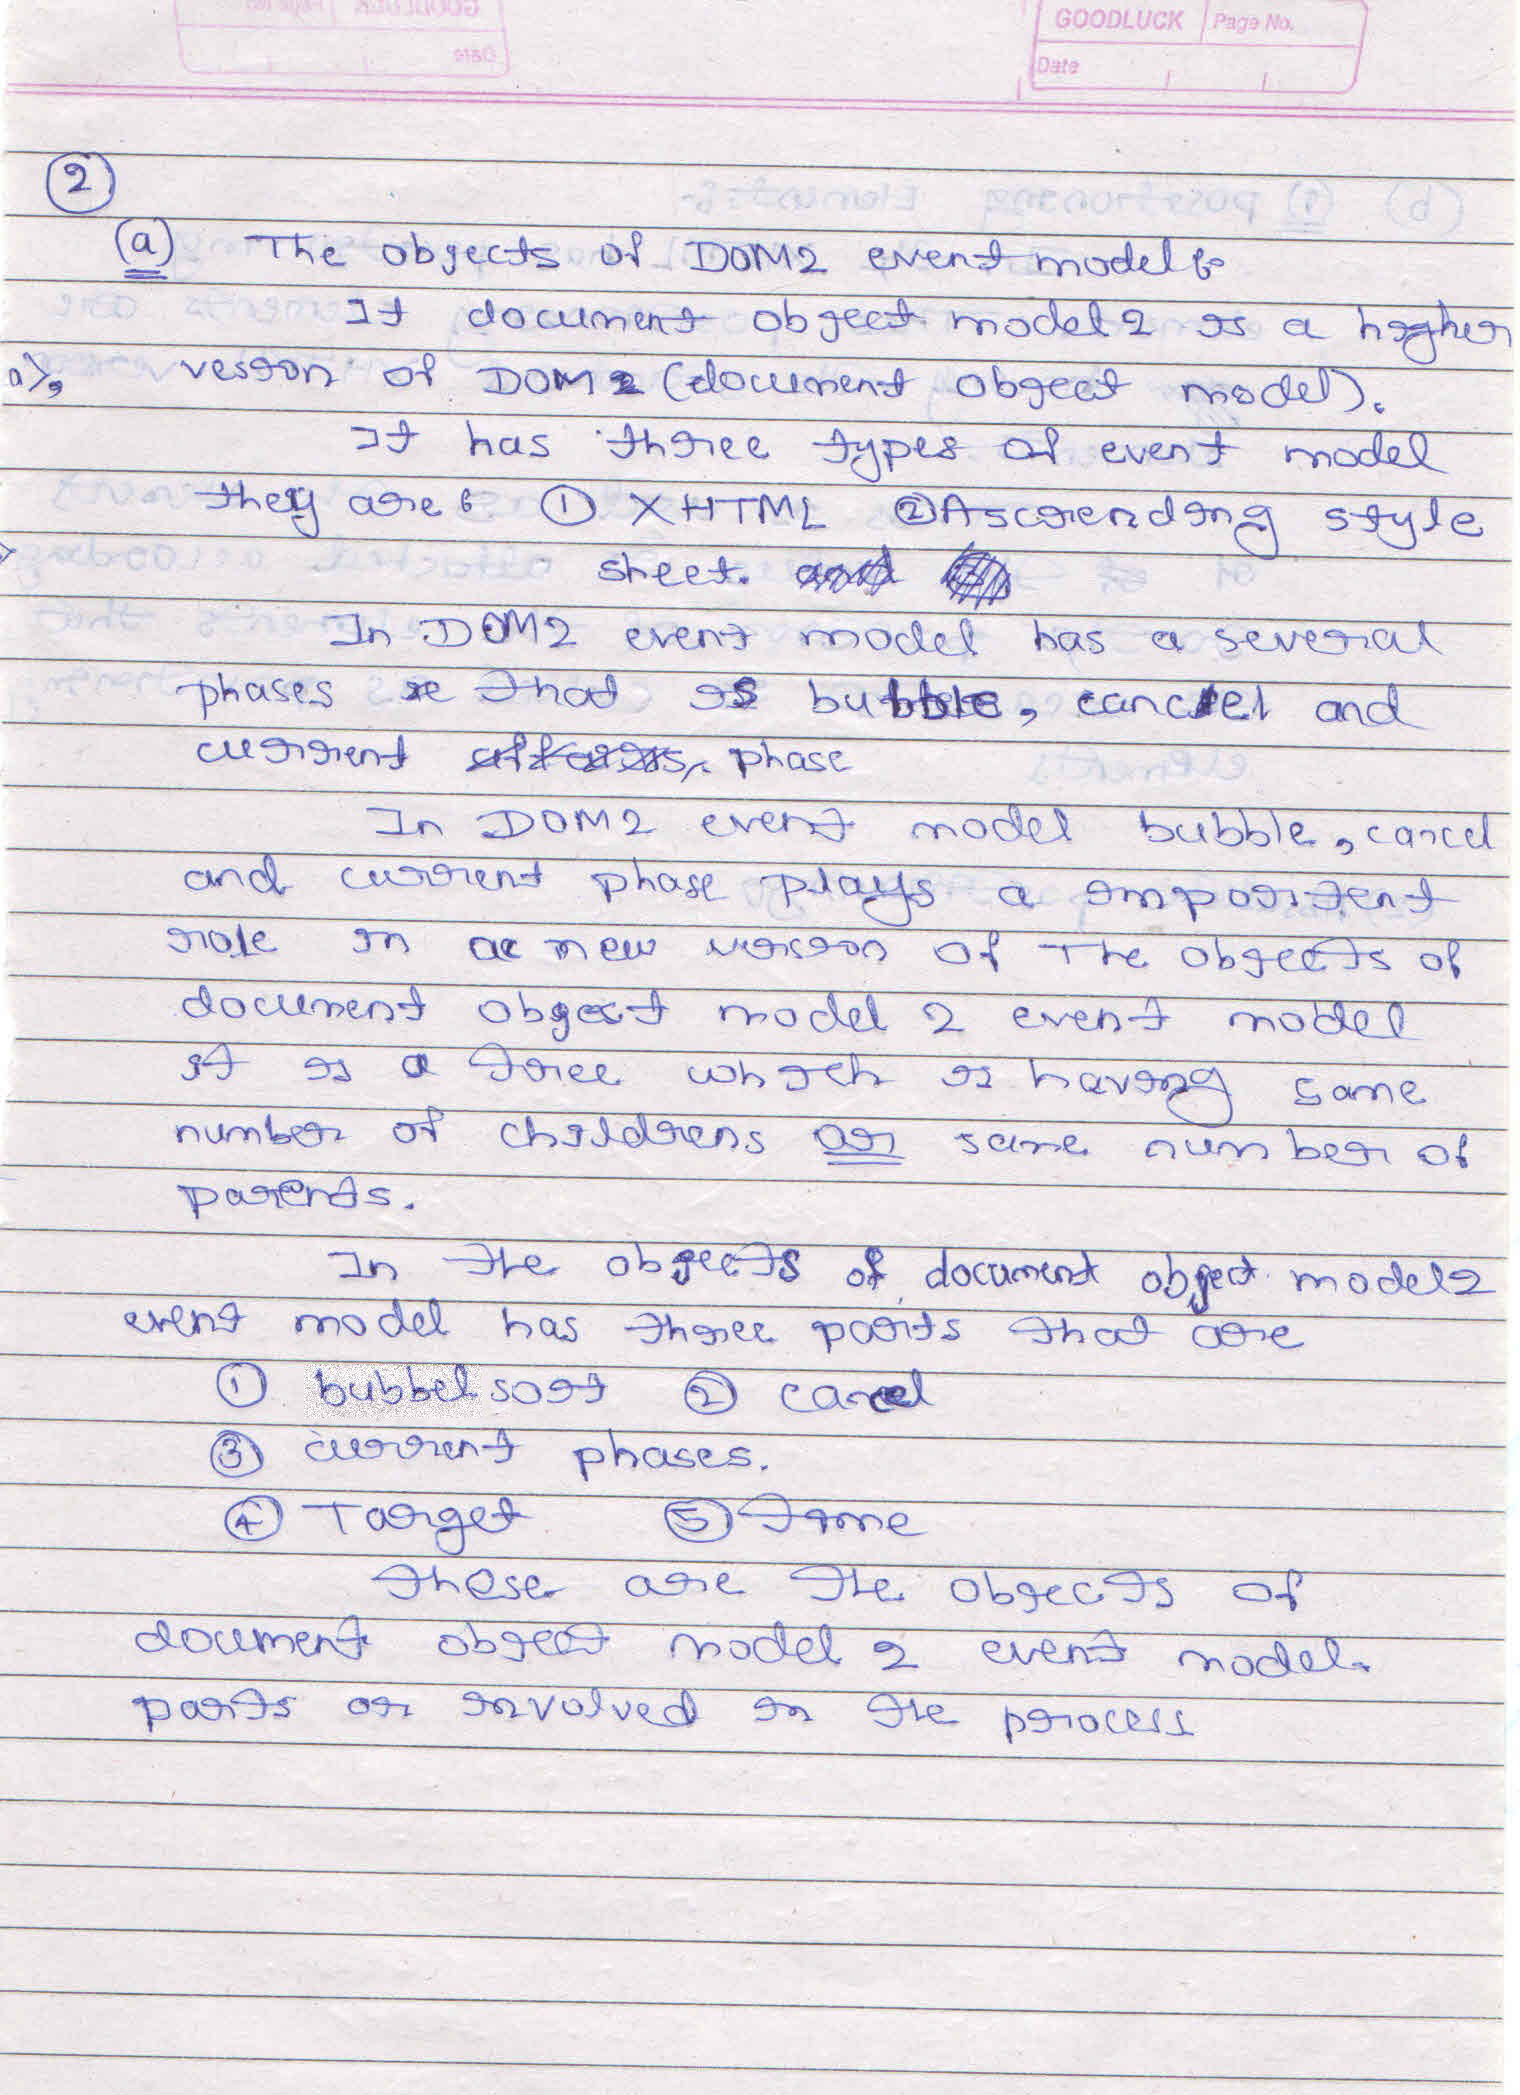 GOODLUCK Page No.
Date
2
(a) The objects of DOM2 event model :-
It document object model 2 is a higher
a), vesion of DOM2 (document object model).
It has three types of event model
they are : ① XHTML ② Ascrending style
sheet. and
In DOM2 event model has a several
phases that is bubble, cancel and
current phase
In DOM2 event model bubble, cancel
and current phase plays a importent
role in a new version of The objects of
document object model 2 event model
it is a tree which is having same
number of childrens or same number of
parents.
In the objects of document object model 2
event model has three parts that are
① bubbel sort ② cancel
③ current phases.
④ Target ⑤ time
these are the objects of
document object model 2 event model.
parts or involved in the process